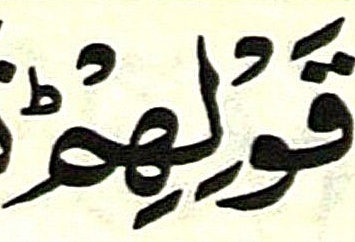 قَوْلِهِمْ ؕ